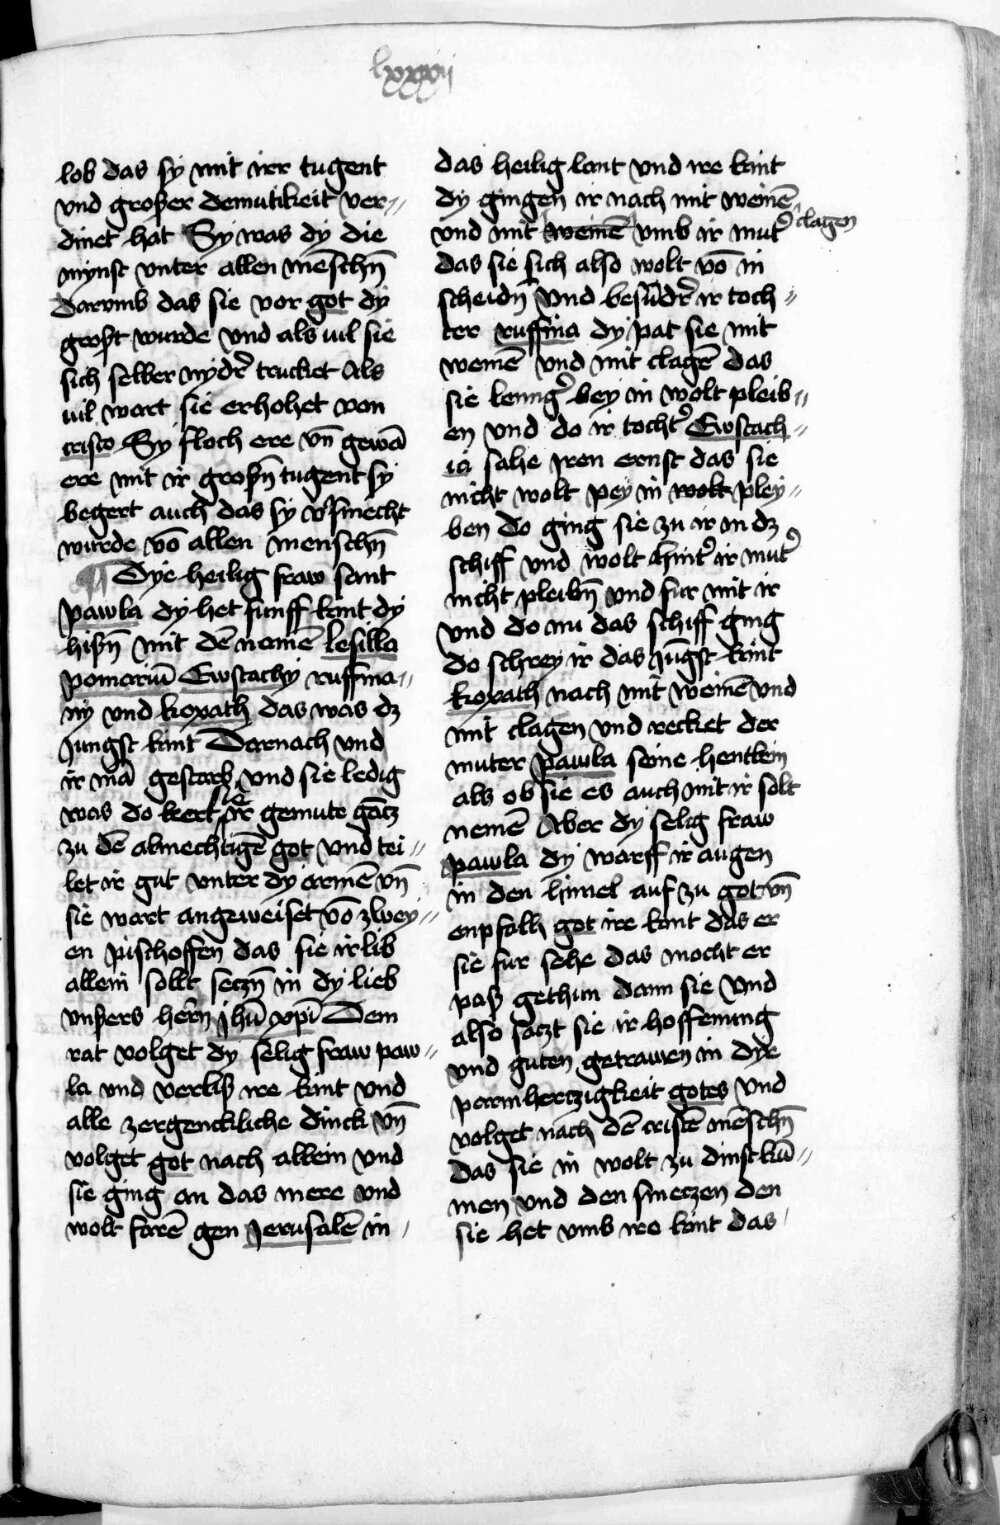 lxxxij
lob das sy mit irr tugent
vnd großer demutikeit ver〃
dinet hat Sy was dy die
mynst vnter allen mēschn̄
darvmb das sie vor got dy
groſt wurde vnd als vil sie
sich selber nydr̉ trucket Als
vil wart sie erhohet von
cristo Sy floch ere vn̄ gewā
ere mit ir groſn̄ tugent sy
begert auch das sy v̉smecht
wurde vō allen menschn̄
Dye heilig fraw sant
pawla dy het funff kint dy
hiſn̄ mit dē namē lesilla
pomariū Ewstachy ruffina〃
ny vnd koxath das was dz
Jungst kint Darnach vnd
ir mā gestarb vnd sie ledig
was do kert sie ir gemute gātz
zu dē almechtigē got vnd tei〃
let ir gut vnter dy armē vn̄
sie wart angeweiset vō zwey〃
en pischoffen das sie ir lib
allein sollt seczn̄ in dy lieb
vnßers hern̄ jhū xpī Dem
rat volget dy selig fraw paw〃
la vnd verliß ire kint vnd
alle zergenckliche dinck vn̄
volget got nach allein vnd
sie ging an das mere vnd
wolt farē gen Jerusalē in
das heilig lant vnd ire kint
dy gingen ir nach mit weinē
vnd mit weinē vmb ir mut̉ clagen
das sie sich also wolt vō in
scheidn̄ Vnd besūdr̉ ir toch〃
ter ruffina dy pat sie mit
weinē vnd mit clagē das
sie leng̉ bey in wolt pleib〃
en vnd do ir tocht̉ Ewstach〃
ia sahe iren ernst das sie
nicht wolt pey in wolt pley〃
ben do ging sie zu ir in dz
schiff vnd wolt hint̉ ir mut̉
nicht pleibn̄ vnd fur mit ir
vnd do nu das schiff ging
do schrey ir das jūgst kint
koxath nach mit weinē vnd
mit clagen vnd recket der
muter pawla seine hentlein
als ob sie es auch mit ir solt
nemē Aber dy selig fraw
pawla dy warff ir augen
in den himel auf zu got vn̄
enpfalh got ire kint das er
sie fur sehe das mocht er
paß gethun dann sie Vnd
also saczt sie ir hoffenung
vnd guten getrawen in dye
parmherczigkeit gotes vnd
volget nach dē cristē mēschn̄
das sie in wolt zu dinst kū〃
men vnd den smerzen den
sie het vmb ire kint das